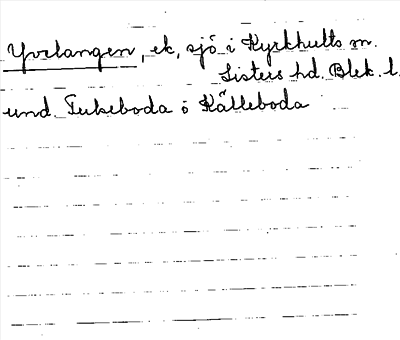 Yvrlangen, ek, sjö i Kyrkhults sn.
Listers hd. Blek. l.
und. Tukeboda o Källeboda